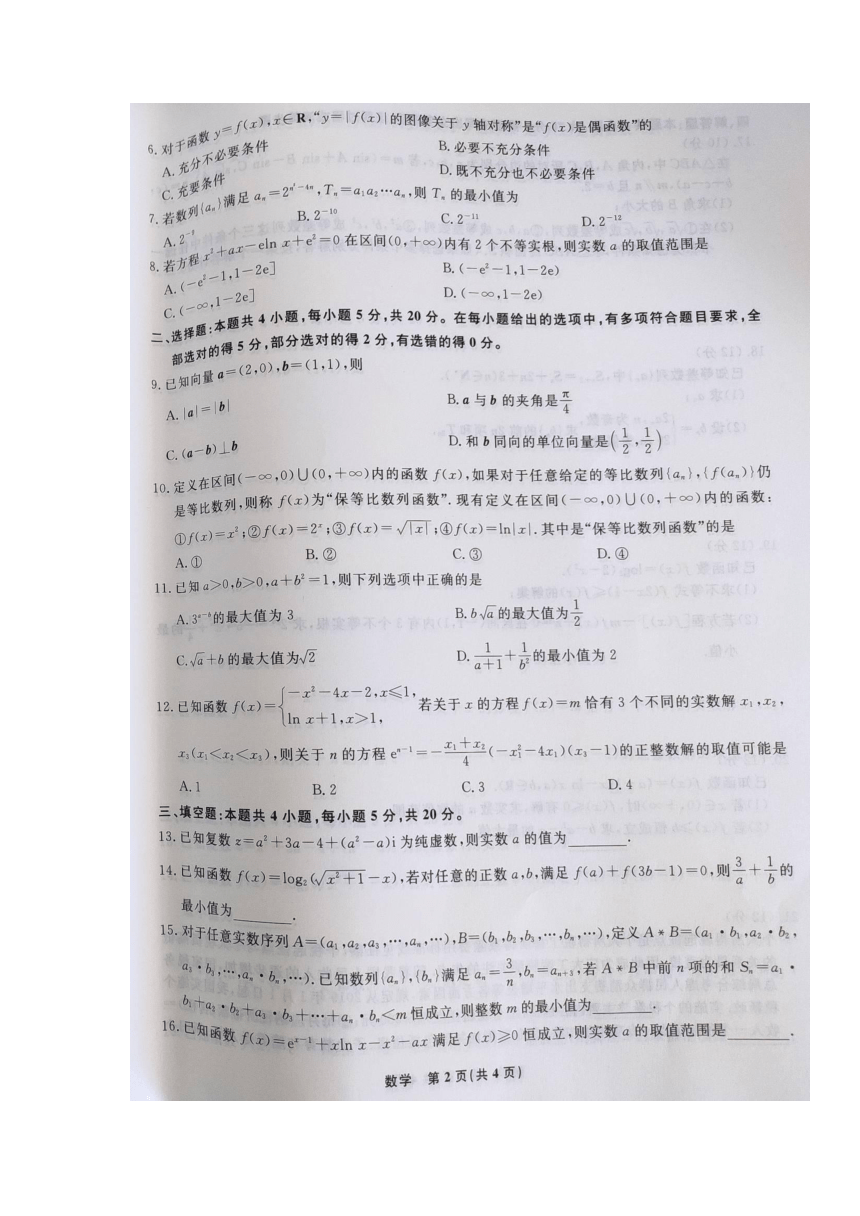 6.对于函数 y=f(x),x∈R,“y=|f(x)|的图像关于 y 轴对称”是“f(x)是偶函数”的
A.充分不必要条件 B.必要不充分条件
C.充要条件 D.既不充分也不必要条件
7.若数列{aₙ}满足 aₙ=2^{n²-4n},Tₙ=a₁a₂…aₙ,则 Tₙ 的最小值为
A.2⁻⁹ B.2⁻¹⁰ C.2⁻¹¹ D.2⁻¹²
8.若方程 x²+ax-eln x+e²=0 在区间(0,+∞)内有 2 个不等实根,则实数 a 的取值范围是
A.(-e²-1,1-2e] B.(-e²-1,1-2e)
C.(-∞,1-2e] D.(-∞,1-2e)
二、选择题:本题共 4 小题,每小题 5 分,共 20 分。在每小题给出的选项中,有多项符合题目要求,全
部选对的得 5 分,部分选对的得 2 分,有选错的得 0 分。
9.已知向量 a=(2,0),b=(1,1),则
A.|a|=|b| B.a 与 b 的夹角是π/4
C.(a-b)⊥b D.和 b 同向的单位向量是(1/2,1/2)
10.定义在区间(-∞,0)∪(0,+∞)内的函数 f(x),如果对于任意给定的等比数列{aₙ},{f(aₙ)}仍
是等比数列,则称 f(x)为“保等比数列函数”.现有定义在区间(-∞,0)∪(0,+∞)内的函数:
①f(x)=x²;②f(x)=2ˣ;③f(x)=√|x|;④f(x)=ln|x|.其中是“保等比数列函数”的是
A.① B.② C.③ D.④
11.已知 a>0,b>0,a+b²=1,则下列选项中正确的是
A.3^{a-b}的最大值为 3 B.b√a的最大值为1/2
C.√a+b 的最大值为√2 D.1/(a+1)+1/b²的最小值为 2
12.已知函数 f(x)={-x²-4x-2,x≤1, ln x+1,x>1, 若关于 x 的方程 f(x)=m 恰有 3 个不同的实数解 x₁,x₂,
x₃(x₁<x₂<x₃),则关于 n 的方程 eⁿ⁻¹=-(x₁+x₂)/4(-x₁²-4x₁)(x₃-1)的正整数解的取值可能是
A.1 B.2 C.3 D.4
三、填空题:本题共 4 小题,每小题 5 分,共 20 分。
13.已知复数 z=a²+3a-4+(a²-a)i 为纯虚数,则实数 a 的值为______.
14.已知函数 f(x)=log₂(√(x²+1)-x),若对任意的正数 a,b,满足 f(a)+f(3b-1)=0,则3/a+1/b的
最小值为______.
15.对于任意实数序列 A=(a₁,a₂,a₃,…,aₙ,…),B=(b₁,b₂,b₃,…,bₙ,…),定义 A*B=(a₁·b₁,a₂·b₂,
a₃·b₃,…,aₙ·bₙ,…).已知数列{aₙ},{bₙ}满足 aₙ=3/n,bₙ=aₙ₊₃,若 A*B 中前 n 项的和 Sₙ=a₁·
b₁+a₂·b₂+a₃·b₃+…+aₙ·bₙ<m 恒成立,则整数 m 的最小值为______.
16.已知函数 f(x)=eˣ⁻¹+xln x-x²-ax 满足 f(x)≥0 恒成立,则实数 a 的取值范围是______.
数学 第 2 页(共 4 页)